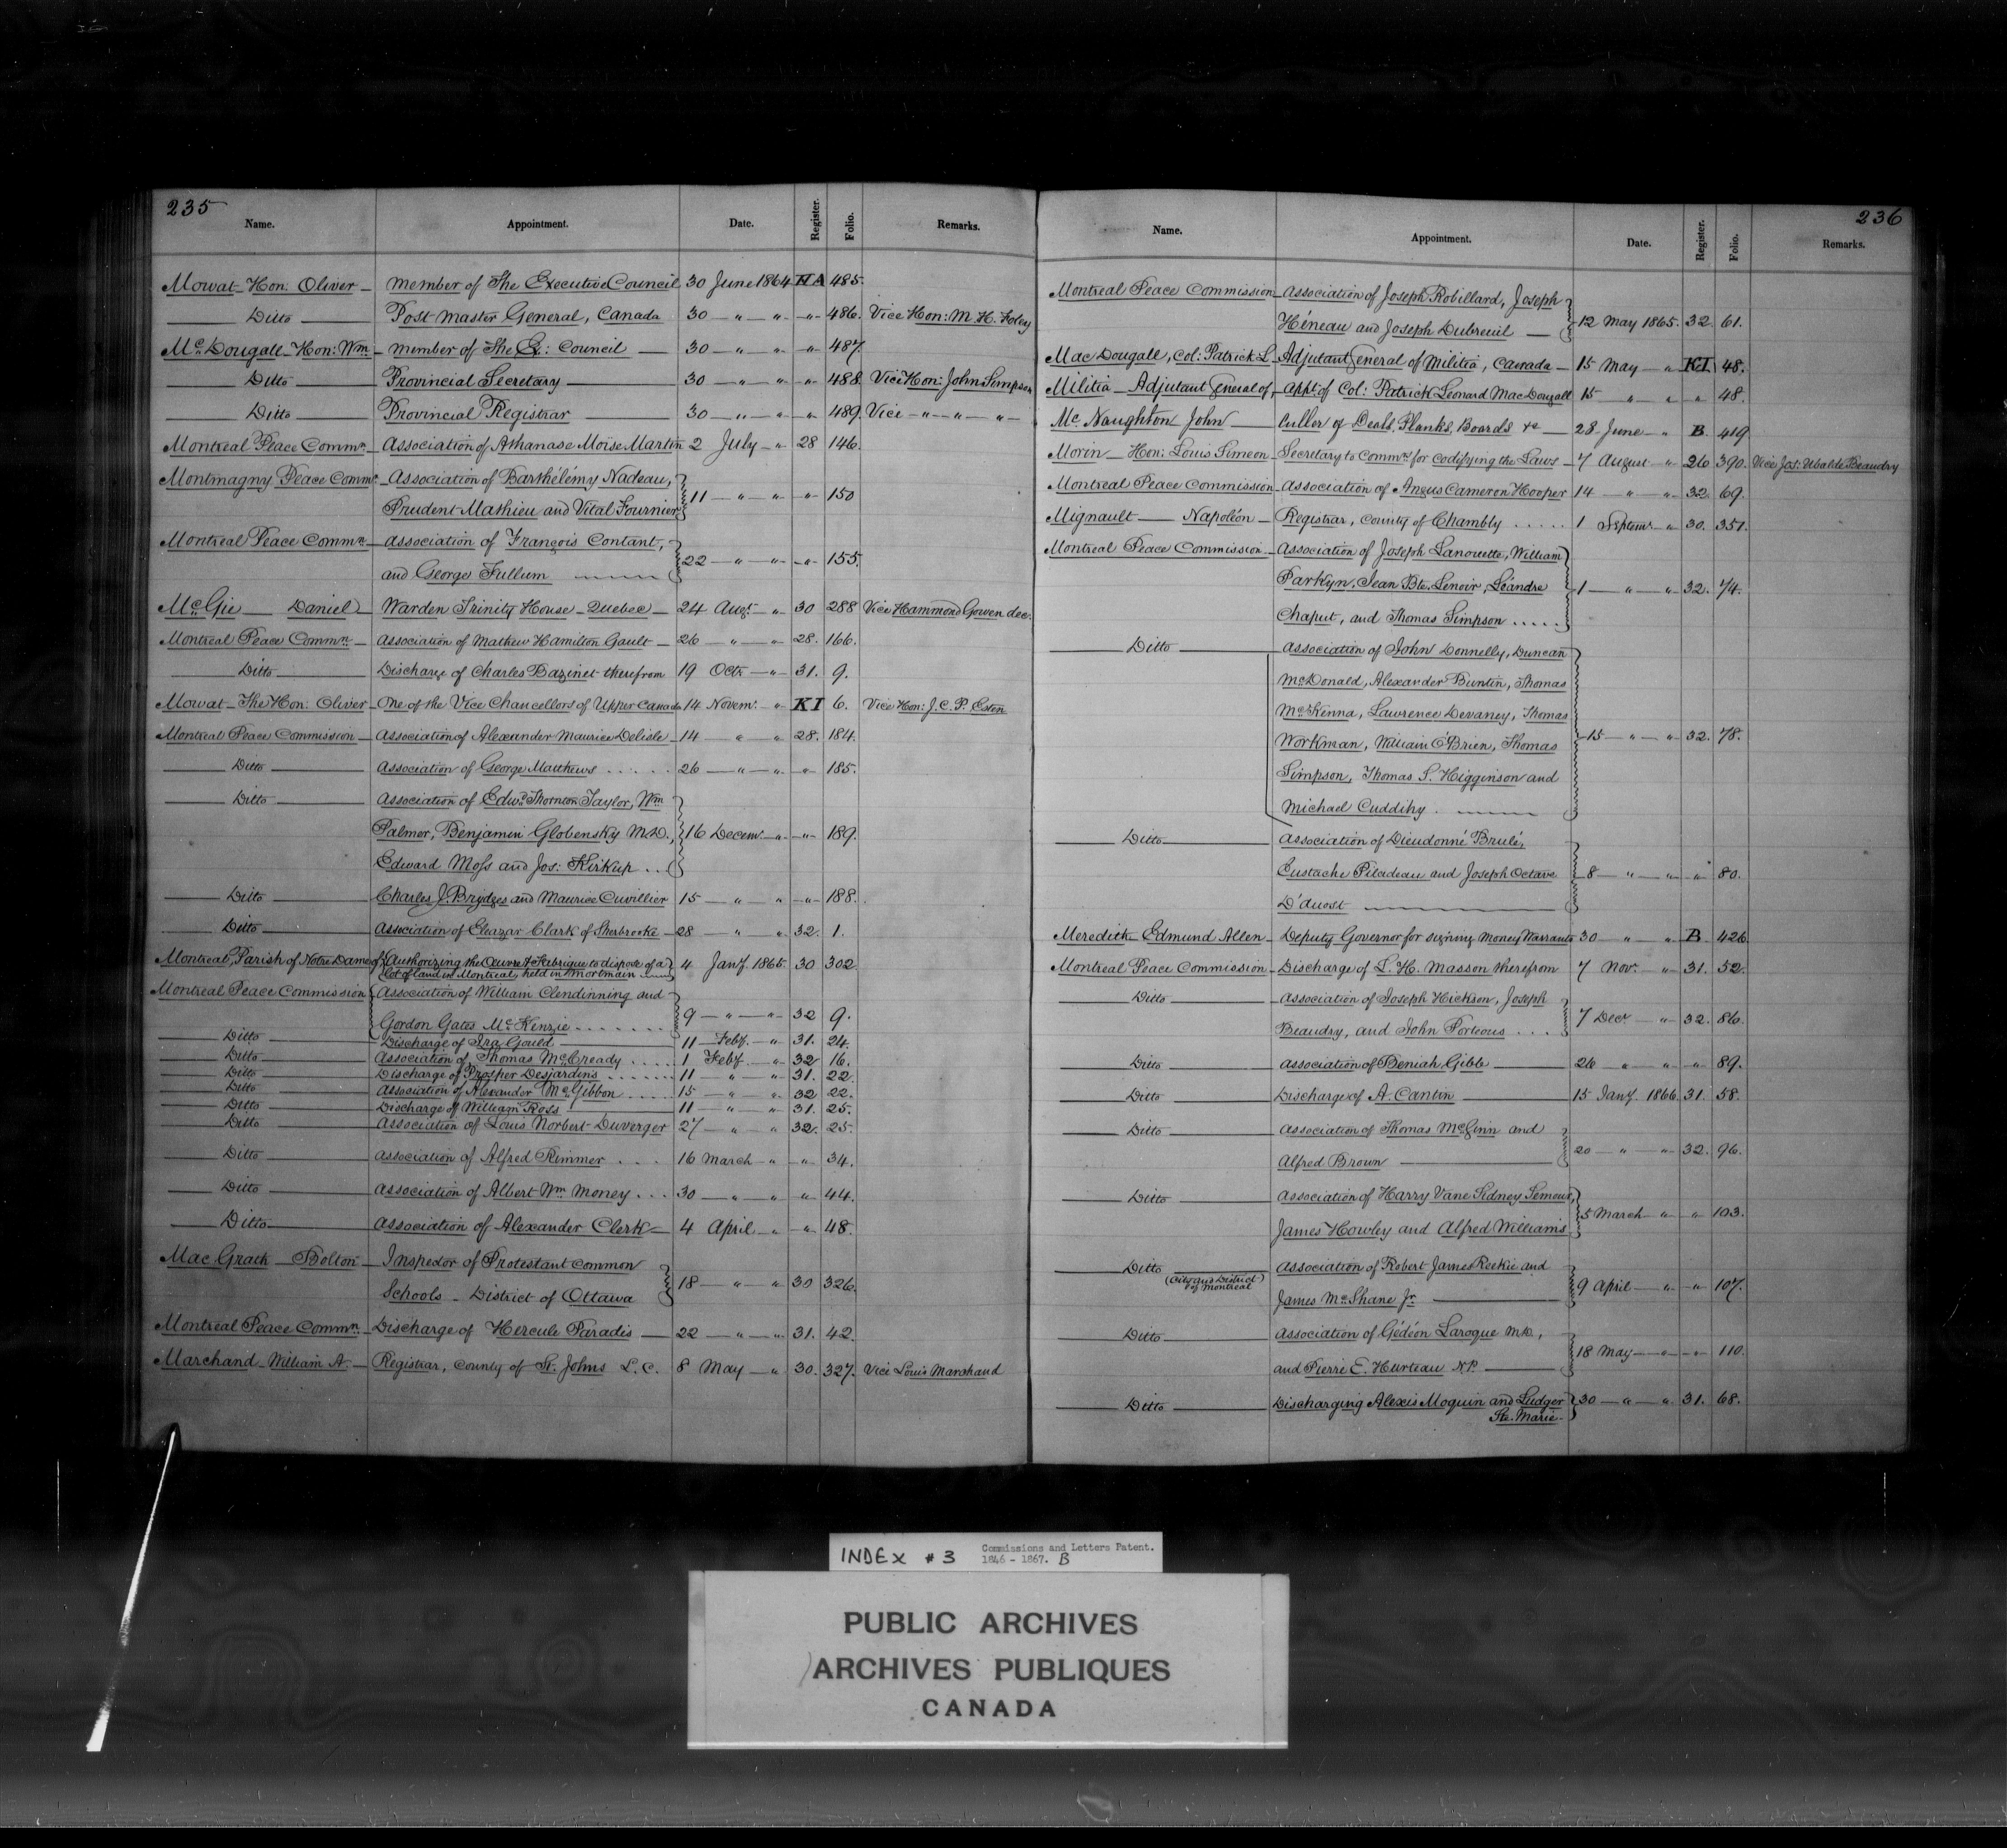 235
Name. Appointment. Date. Register. Folio. Remarks.
Mowat Hon: Oliver — Member of The Executive Council 30 June 1864 HA 485.
Ditto Post Master General, Canada 30 — " — " — " — 486. Vice Hon: M. H. Foley
McDougall Hon: Wm — Member of The Ex: Council — 30 — " — " — " — 487.
Ditto Provincial Secretary 30 — " — " — " — 488. Vice Hon: John Simpson
Ditto Provincial Registrar 30 — " — " — " 489. Vice — " — " — " —
Montreal Peace Commn. — Association of Athanase Moïse Martin 2 July — " 28 146.
Montmagny Peace Commn. — Association of Barthélémy Nadeau,
Prudent Mathieu and Vital Fournier 11 — " — " — " — 150
Montreal Peace Commn. — Association of François Contant,
and George Fullum 22 — " — " — " — 155.
McGie — Daniel Warden Trinity House — Quebec — 24 Augt. — " 30 288 Vice Hammond Gowen dec.
Montreal Peace Commn. — Association of Mathew Hamilton Gault — 26 — " — " 28. 166.
Ditto Discharge of Charles Bazinet therefrom 19 Octr. — " — 31. 9.
Mowat — The Hon: Oliver — One of the Vice Chancellors of Upper Canada 14 Novemr. — " KI 6. Vice Hon: J. C. P. Esten
Montreal Peace Commission — Association of Alexander Maurice Delisle — 14 — " — " 28. 184.
Ditto Association of George Matthews ..... 26 — " — " — " 185.
Ditto Association of Edwd. Thornton Taylor, Wm
Palmer, Benjamin Globensky M.D., 16 Decemr. — " — " — 189.
Edward Moss and Jos: Kirkup ...
Ditto Charles J. Brydges and Maurice Cuvillier 15 — " — " — " — 188.
Ditto Association of Eleazar Clark of Sherbrooke — 28 — " — " 32. 1.
Montreal, Parish of Notre Dame of Authorizing the Œuvre & Fabrique to dispose of a 4 Jany. 1865. 30 302
lot of land in Montreal, held in mortmain
Montreal Peace Commission Association of William Clendinning and
Gordon Gates McKenzie ....... 9 — " — " — 32 9.
Ditto Discharge of Ira Gould 11 Feby. — " 31. 24.
Ditto Association of Thomas McCready .... 1 Feby. " 32 16.
Ditto Discharge of Prosper Desjardins ....... 11 — " " 31. 22.
Ditto Association of Alexander McGibbon .... 15 — " " 32 22.
Ditto Discharge of William Ross 11 — " " 31. 25.
Ditto Association of Louis Norbert Duverger 27 — " " 32. 25.
Ditto Association of Alfred Rimmer .... 16 March — " " 34.
Ditto Association of Albert Wm. Money ... 30 — " " " 44.
Ditto Association of Alexander Clerk — 4 April — " " 48.
Mac Grath — Bolton — Inspector of Protestant Common
Schools — District of Ottawa 18 — " — " 30 326.
Montreal Peace Commn. — Discharge of Hercule Paradis — 22 — " — " 31. 42.
Marchand — William A. — Registrar, County of St. Johns L. C. 8 May — " 30. 327. Vice Louis Marchand
236
Name. Appointment. Date. Register. Folio. Remarks.
Montreal Peace Commission — Association of Joseph Robillard, Joseph
Héneau and Joseph Dubreuil — 12 May 1865. 32. 61.
Mac Dougall, Col: Patrick L — Adjutant General of Militia, Canada — 15 May — " KI 48.
Militia — Adjutant General of, Appt. of Col: Patrick Leonard MacDougall 15 " " " 48.
McNaughton John — Culler of Deals, Planks, Boards &c — 28 June — " B. 419
Morin — Hon: Louis Simeon — Secretary to Commn. for codifying the Laws — 7 August — " 26 390. Vice Jos: Ubalde Beaudry
Montreal Peace Commission — Association of Angus Cameron Hooper 14 — " — " 32. 69.
Mignault — Napoléon — Registrar, County of Chambly ..... 1 Septemr. " 30. 351.
Montreal Peace Commission — Association of Joseph Lanouette, William
Parkyn, Jean Bte. Lenoir, Léandre 1 — " — " 32. 74.
Chaput, and Thomas Simpson .....
Ditto Association of John Donnelly, Duncan
McDonald, Alexander Buntin, Thomas
McKenna, Lawrence Devaney, Thomas
Workman, William O'Brien, Thomas 15 — " — " 32. 78.
Simpson, Thomas S. Higginson and
Michael Cuddihy.
Ditto Association of Dieudonné Brulé,
Eustache Piladeau and Joseph Octave 8 — " — " — " 80.
D'auost
Meredith Edmund Allen — Deputy Governor for signing Money Warrants 30 — " — " B. 426
Montreal Peace Commission — Discharge of L. H. Masson therefrom 7 Novr. — " 31. 52.
Ditto Association of Joseph Hickson, Joseph
Beaudry, and John Porteous ... 7 Decr. — " 32. 86.
Ditto Association of Beniah Gibb 26 " " " 89.
Ditto Discharge of A. Cantin 15 Jany. 1866. 31. 58.
Ditto Association of Thomas McGinn and
Alfred Brown 20 — " — " 32. 96.
Ditto Association of Harry Vane Sidney Semour,
James Howley and Alfred Williams 5 March — " — " 103.
Ditto Association of Robert James Reekie and
(City and District of Montreal) James McShane Jr. 9 April — " — " — 107.
Ditto Association of Gédéon Laroque M.D.,
and Pierre E. Hurteau N.P. 18 May — " — " — 110.
Ditto Discharging Alexis Moquin and Ludger 30 — " — " 31. 68.
Ste. Marie.
INDEX # 3 Commissions and Letters Patent.
1846 - 1867. B
PUBLIC ARCHIVES
ARCHIVES PUBLIQUES
CANADA